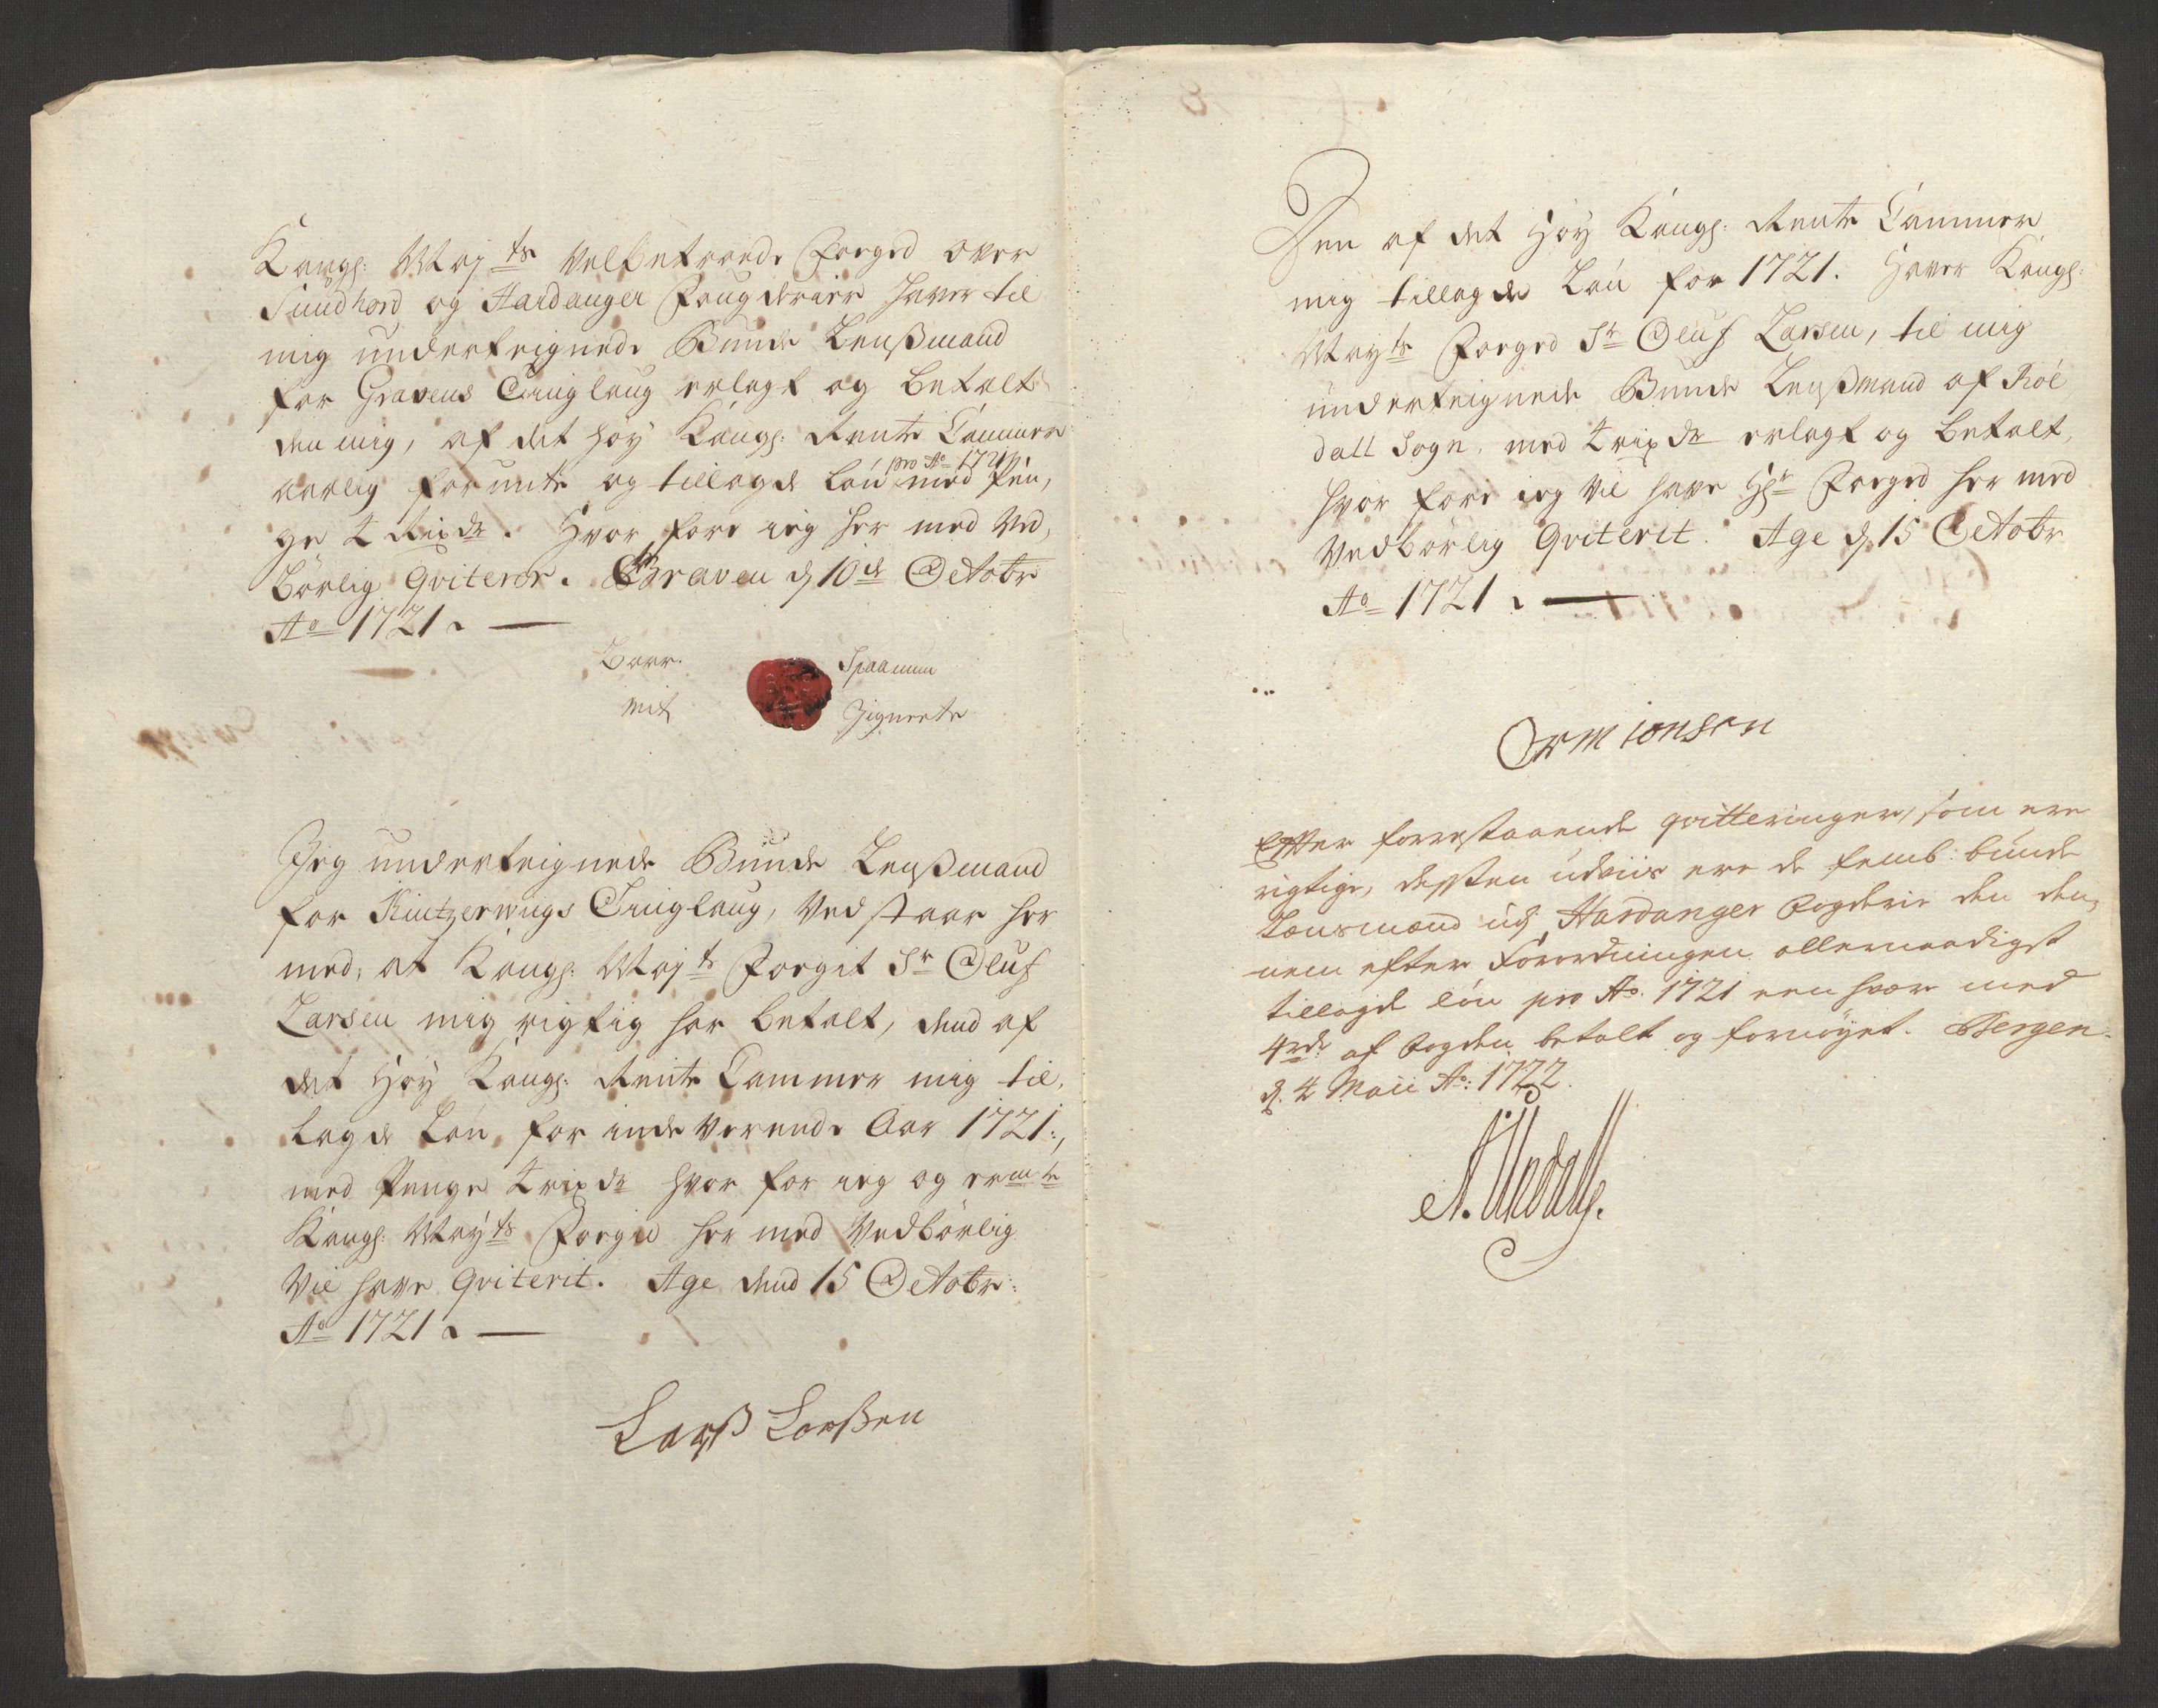 Kongl: Maj:ts Velbetroede Foeged over
Sundhord og Hardanger Fougderier haver til
mig underteignede Bunde Lenßmand
for Gravens Tinglaug erlagt og betalt
den mig, af det høy Kongl: Rente Cammer
aarlig forunte og tillagde Løn pro Ao 1721 med Pen,
ge 4 Rixdr. Hvor fore ieg her med Ved,
börlig Qviterer. Graven d 10de Octobr
Ao 1721.
Baar
Spaanum
mit
Zignete
Jeg underteignede Bunde Lenßmand
for Kintzerwigs Tinglaug, Ved staar her
med, at Kongl: Maj:ts Foegit Sr Oluf
Larsen mig rigtig har betalt, dend af
det Høy Kongl: Rente Cammer mig til,
lagde Løn, for inde værende Aar 1721.,
med Penge 4 rixdr hvor for ieg og ermte
Kongl: Mayts Foegid her med Vedbörlig
Vil have Qviterit. Age dend 15 Octobr:
Ao 1721.
Larß Larßen
Den af det Høy Kongl: Rente Cammer
mig tillagde Løn for 1721. Haver Kongl:
Mayts Foeged Sr Oluf Larsen, til mig
underteignede Bunde Lenßmand af Röl
dall Sogn, med 4 rixdr erlagt og betalt,
hvor fore ieg vil have Hr Foeged her med
Vedbörlig Qviterit. Age d 15 Octobr
Ao 1721.
Orm ionsen
Efter forestaaende qvitteringer, som ere
rigtige, dessen udviis ere de femb: bunde
Lænsmænd udj Hardanger Fogderie den den,
nem efter Forordningen allernaadigst
tillagde løn pro Ao. 1721 een hver med
4rdr. af Fogden betalt og fornøyet. Bergen
d. 4 Maii Ao: 1722.